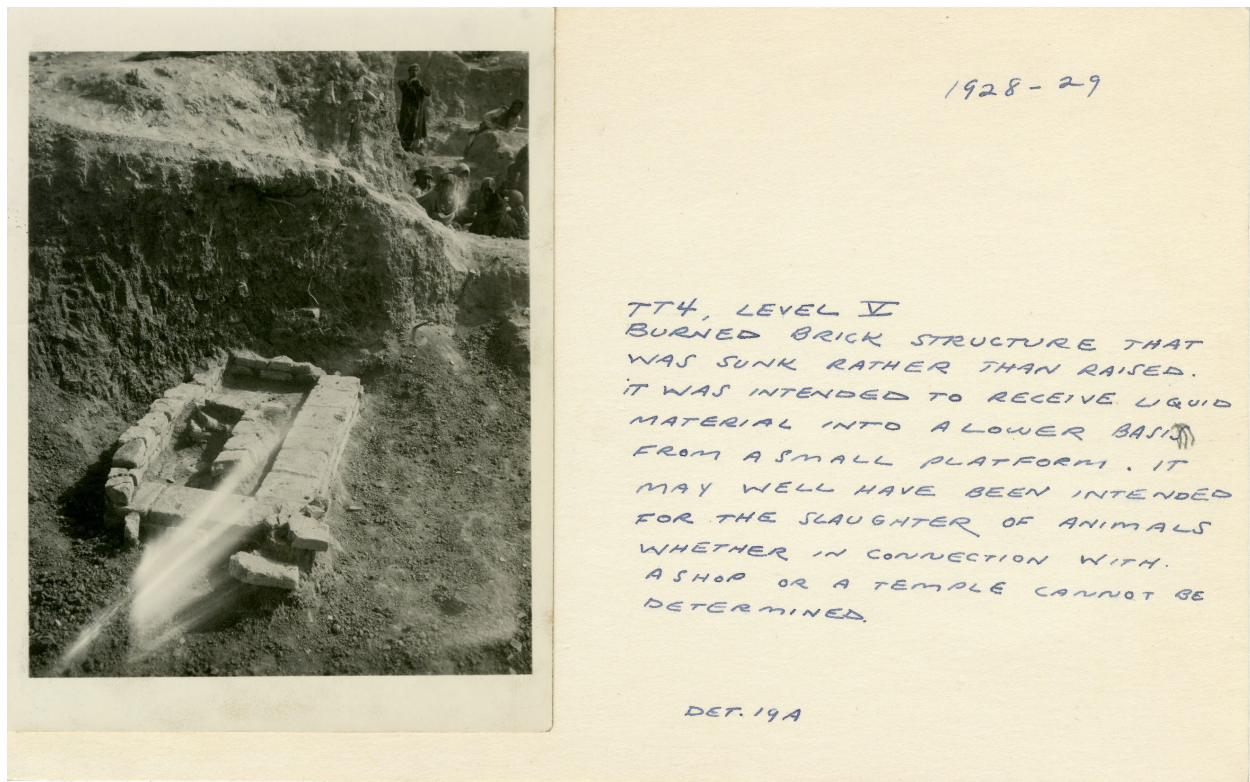 1928-29
TT4, LEVEL V
BURNED BRICK STRUCTURE THAT
WAS SUNK RATHER THAN RAISED.
IT WAS INTENDED TO RECEIVE LIQUID
MATERIAL INTO A LOWER BASIN
FROM A SMALL PLATFORM. IT
MAY WELL HAVE BEEN INTENDED
FOR THE SLAUGHTER OF ANIMALS
WHETHER IN CONNECTION WITH.
A SHOP OR A TEMPLE CANNOT BE
DETERMINED.
DET. 19A